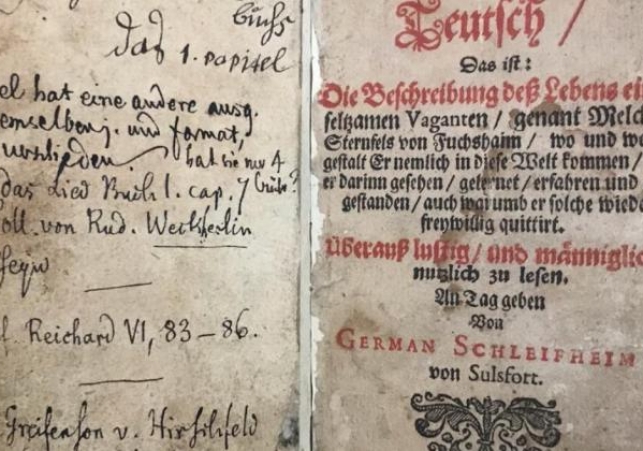 buchs
das 1. capitel
el hat eine andere ausg.
emselben j. und format,
hat sie nur 4
das Lied Buch 1. cap. 7
oll. von Rud. Weckherlin
l. Reichard VI, 83–86.
Greifenson v. Hirschfeld
Teutsch /
Das ist:
Die Beschreibung deß Lebens ei
seltzamen Vaganten / genant Melch
Sternfels von Fuchshaim / wo und we
gestalt Er nemlich in diese Welt kommen /
er darinn gesehen / gelernet / erfahren und
gestanden / auch warumb er solche wied
freywillig quittirt.
Überauß lustig / und männiglic
nutzlich zu lesen.
An Tag geben
Von
GERMAN SCHLEIFHEIM
von Sulsfort.